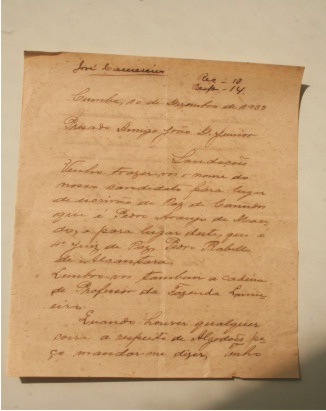 José
Rec - 10
Resp - 14.
de Dezembro de 1932
Presado Amigo João
Saudações
Venho trazer-vos o nome do
nosso candidato para lugar
de escrivão de Paz de
que é Pedro Araujo de
para lugar deste, que é
o Juiz de Paz, Pedro Rabello
de Alcantara.
Lembro-vos tambem a cadeira
de Professor da Fazenda
Quando houver qualquer
coisa a respeito de Algodões pe-
ço mandar-me dizer. Tenho